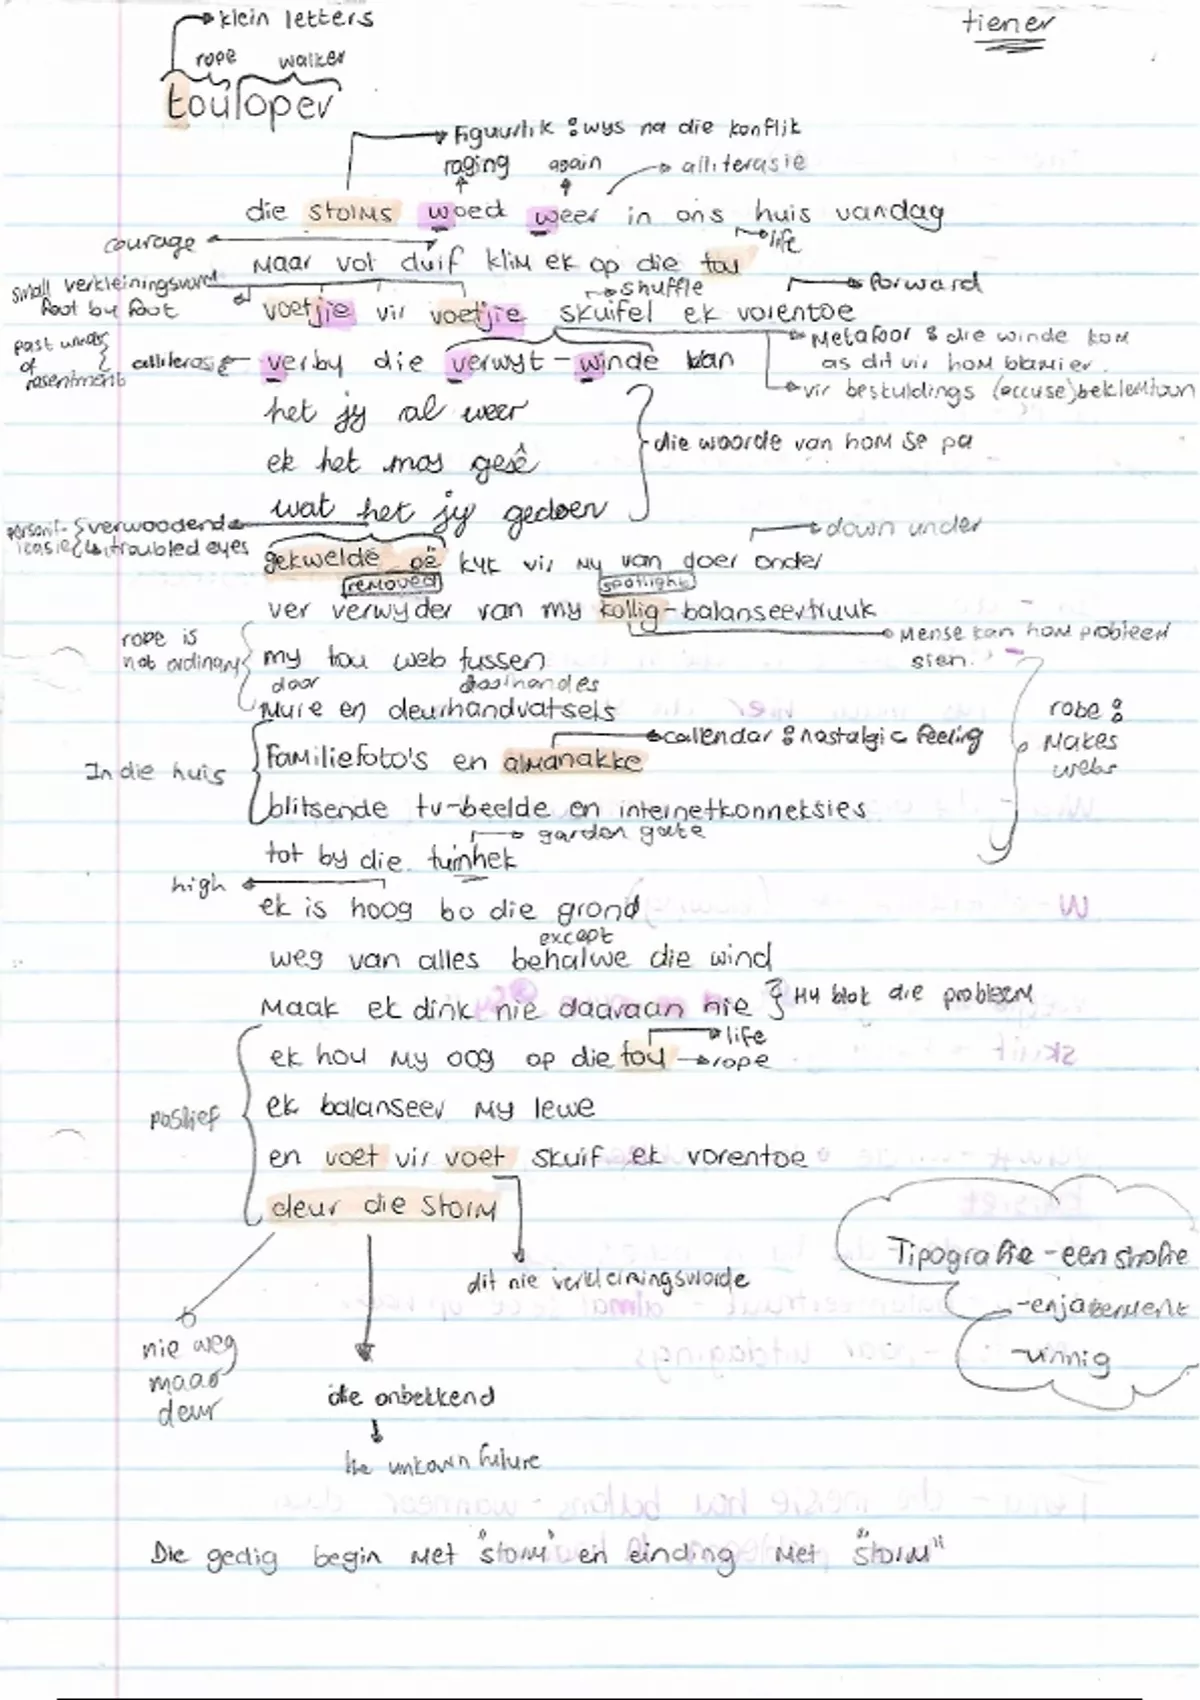 klein letters
tiener
rope walker
touloper
Figuurlik : wys na die konflik
raging again alliterasie
die storms woed weer in ons huis vandag
courage
life
maar vol durf klim ek op die tou
small verkleiningsword
foot by foot
shuffle
forward
voetjie vir voetjie skuifel ek vorentoe
past winds
of
resentment
alliterasie
verby die verwyt-winde van
Metafoor : die winde kom
as dit vir hom blameer.
vir beskuldings (accuse) beklemtoon
het jy al weer
ek het mos gesê
wat het jy gedoen
die woorde van hom se pa
personi-
icasie
verwoodend
troubled eyes
down under
gekwelde oë kyk vir my van doer onder
removed
spotlight
ver verwyder van my kollig-balanseertruuk
Mense kan hom probleem
sien.
rope is
not ordinary
my tou web tussen
door doorhandles
mure en deurhandvatsels
callendar : nostalgic feeling
In die huis
familiefoto's en almanakke
blitsende tv-beelde en internetkonneksies
robe :
Makes
webs
garden gate
tot by die tuinhek
high
ek is hoog bo die grond
except
weg van alles behalwe die wind
maak ek dink nie daaraan nie
Hy blok die probleem
life
ek hou my oog op die tou
rope
ek balanseer my lewe
en voet vir voet skuif ek vorentoe
deur die storm
dit nie verkleiningsworde
nie weg
maar
deur
die onbekkend
the unkown future
Tipografie - een strofie
-enjabement
-vinnig
Die gedig begin met "storm" en einding met "storm"